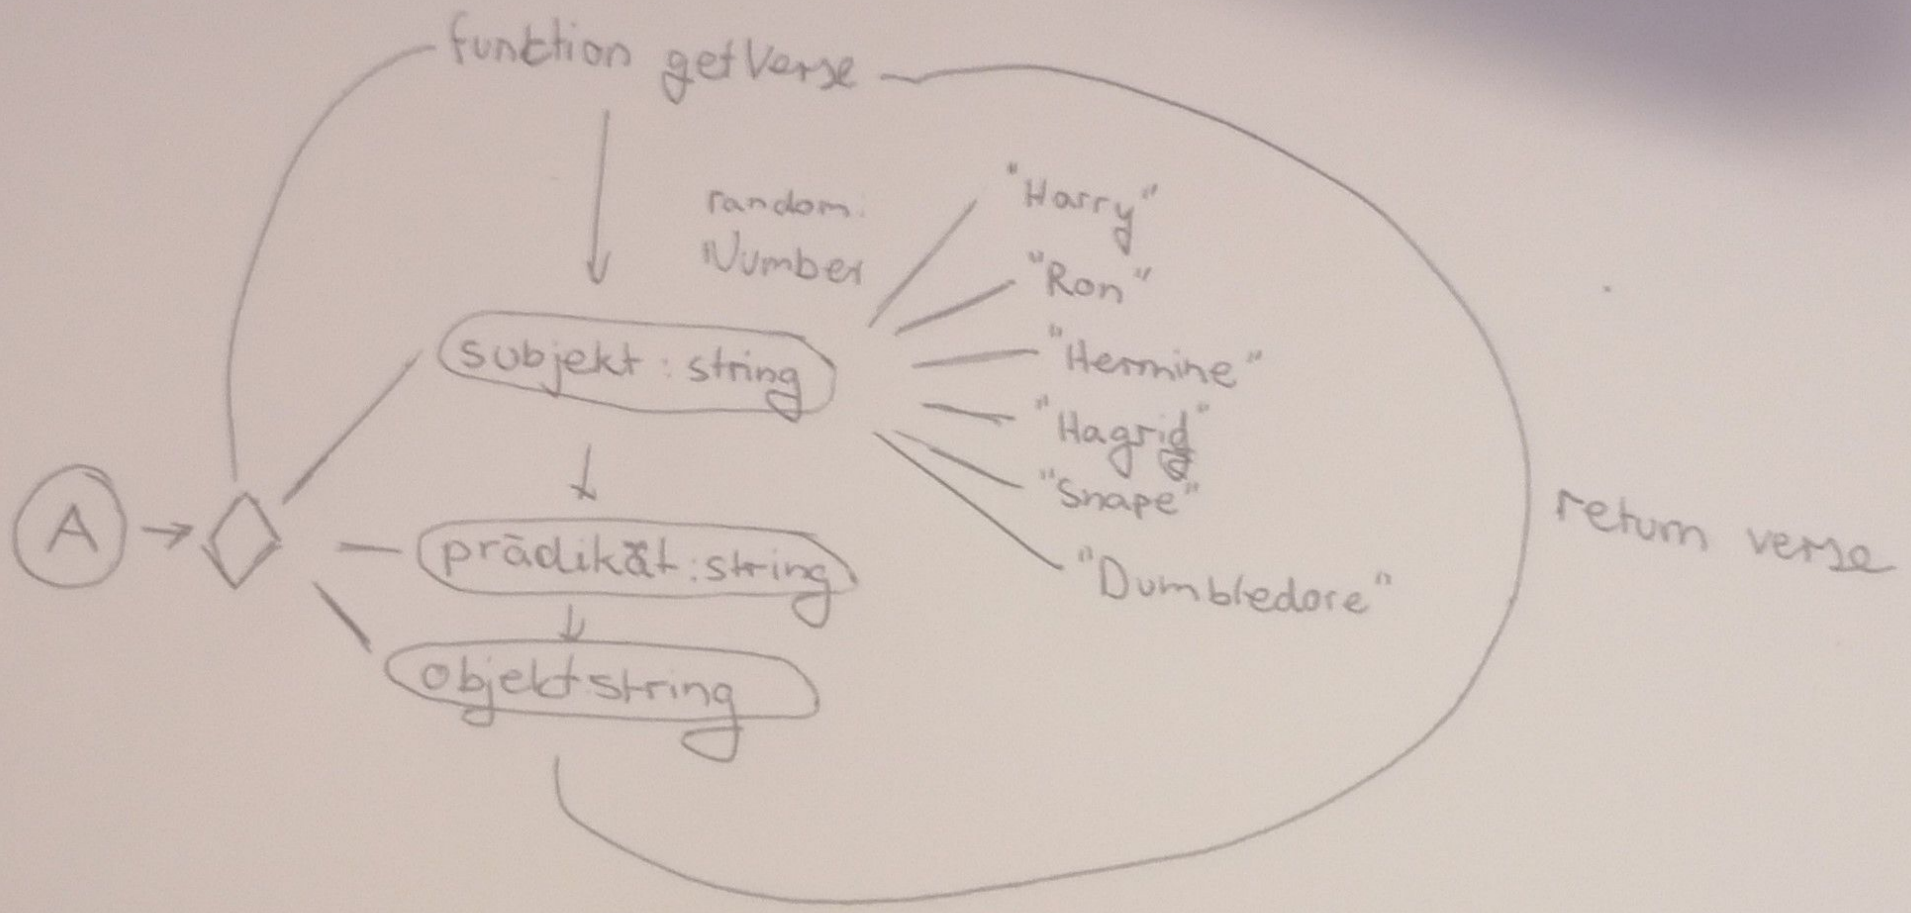 funktion getVerse
random
Number
"Harry"
"Ron"
"Hermine"
"Hagrid"
"Snape"
"Dumbledore"
subjekt : string
A
prädikat : string
objekt string
return verse